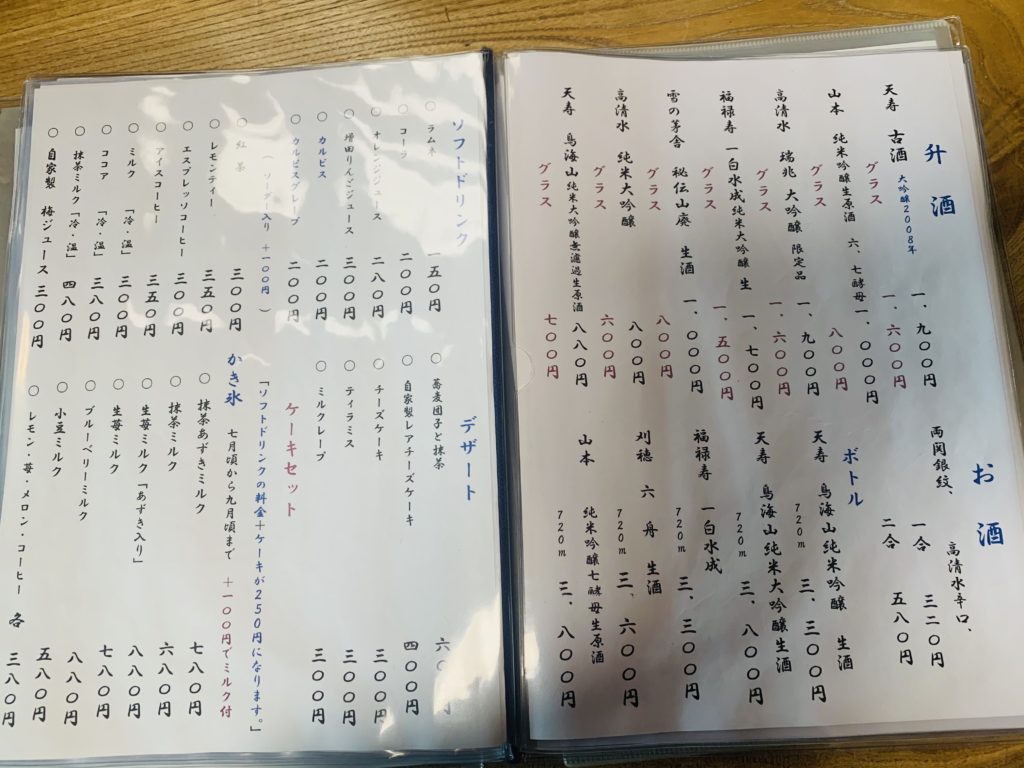 升酒
天寿 古酒 大吟醸2008年 一、九〇〇円
グラス 一、六〇〇円
山本 純米吟醸生原酒 六、七酵母 一、〇〇〇円
グラス 八〇〇円
高清水 瑞兆 大吟醸 限定品 一、九〇〇円
グラス 一、六〇〇円
福禄寿 一白水成純米大吟醸 生 一、七〇〇円
グラス 一、五〇〇円
雪の茅舎 秘伝山廃 生酒 一、〇〇〇円
グラス 八〇〇円
高清水 純米大吟醸 八〇〇円
グラス 六〇〇円
天寿 鳥海山純米大吟醸無濾過生原酒 八八〇円
グラス 七〇〇円
お酒
高清水辛口、
両関銀紋、
一合 三二〇円
二合 五八〇円
ボトル
天寿 鳥海山純米吟醸 生酒
720m 三、三〇〇円
天寿 鳥海山純米大吟醸生酒
720m 三、八〇〇円
福禄寿 一白水成
720m 三、三〇〇円
刈穂 六舟 生酒
720m 三、六〇〇円
山本 純米吟醸七酵母生原酒
720m 三、八〇〇円
ソフトドリンク
○ ラムネ 一五〇円
○ コーラ 二〇〇円
○ オレンジジュース 二八〇円
○ 増田りんごジュース 三〇〇円
○ カルピス 二〇〇円
○ カルピスグレープ 二〇〇円
(ソーダ入り +一〇〇円)
○ 紅茶 三〇〇円
○ レモンティー 三五〇円
○ エスプレッソコーヒー 三〇〇円
○ アイスコーヒー 三五〇円
○ ミルク 「冷・温」 三〇〇円
○ ココア 「冷・温」 三八〇円
○ 抹茶ミルク「冷・温」 四八〇円
○ 自家製 梅ジュース 三〇〇円
デザート
○ 蕎麦団子と抹茶 六〇〇円
○ 自家製レアチーズケーキ 四〇〇円
○ チーズケーキ 三〇〇円
○ ティラミス 三〇〇円
○ ミルクレープ 三〇〇円
ケーキセット
「ソフトドリンクの料金+ケーキが250円になります。」
かき氷 七月頃から九月頃まで +一〇〇円でミルク付
○ 抹茶あずきミルク 七八〇円
○ 抹茶ミルク 六八〇円
○ 生苺ミルク「あずき入り」 八八〇円
○ 生苺ミルク 七八〇円
○ ブルーベリーミルク 八八〇円
○ 小豆ミルク 五八〇円
○ レモン・苺・メロン・コーヒー 各 三八〇円